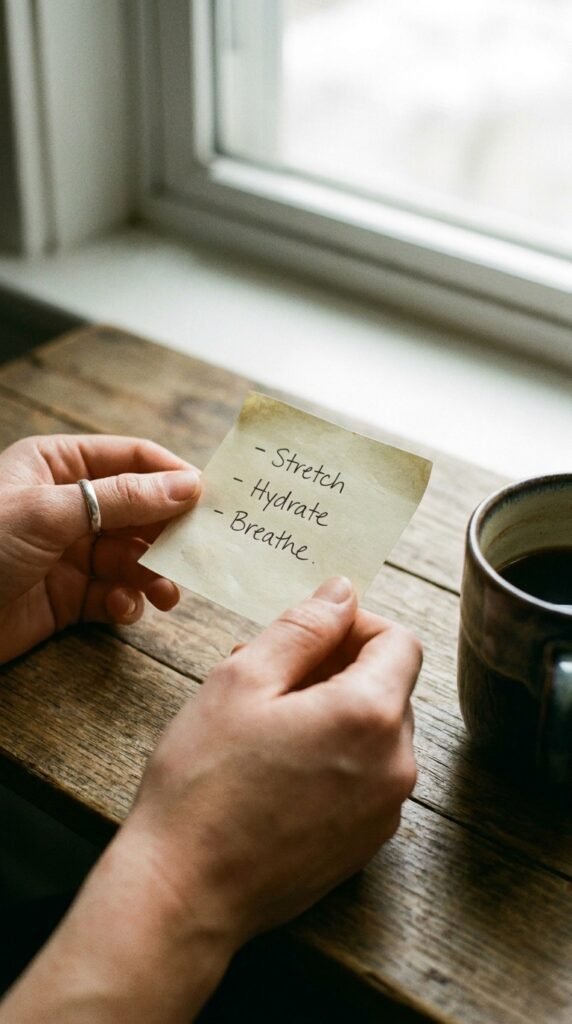 - Stretch
- Hydrate
- Breathe.